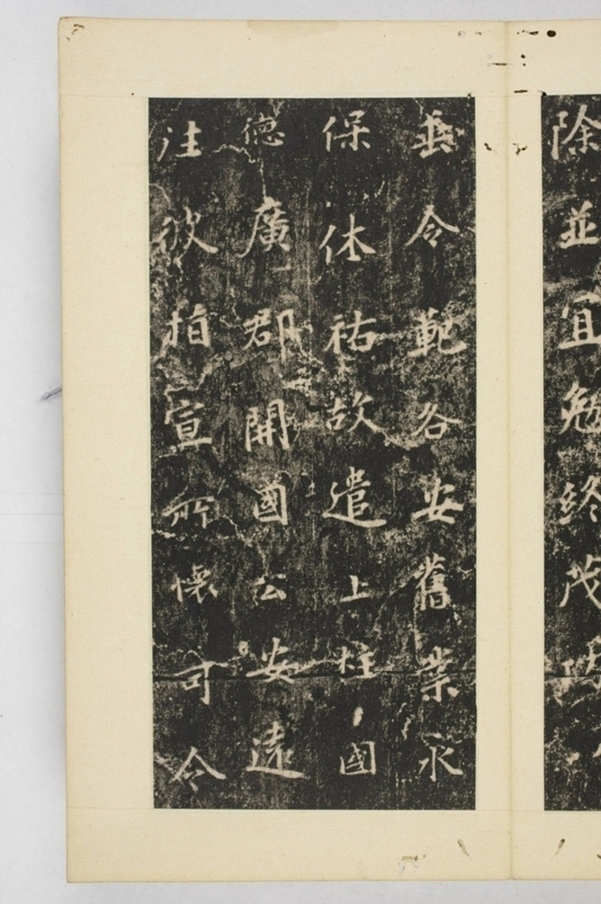 除並宜勉終茂功
垂令範各安舊業永
保休祐故遣上柱國
德廣郡開國公安遠
往彼指宣所懷可令